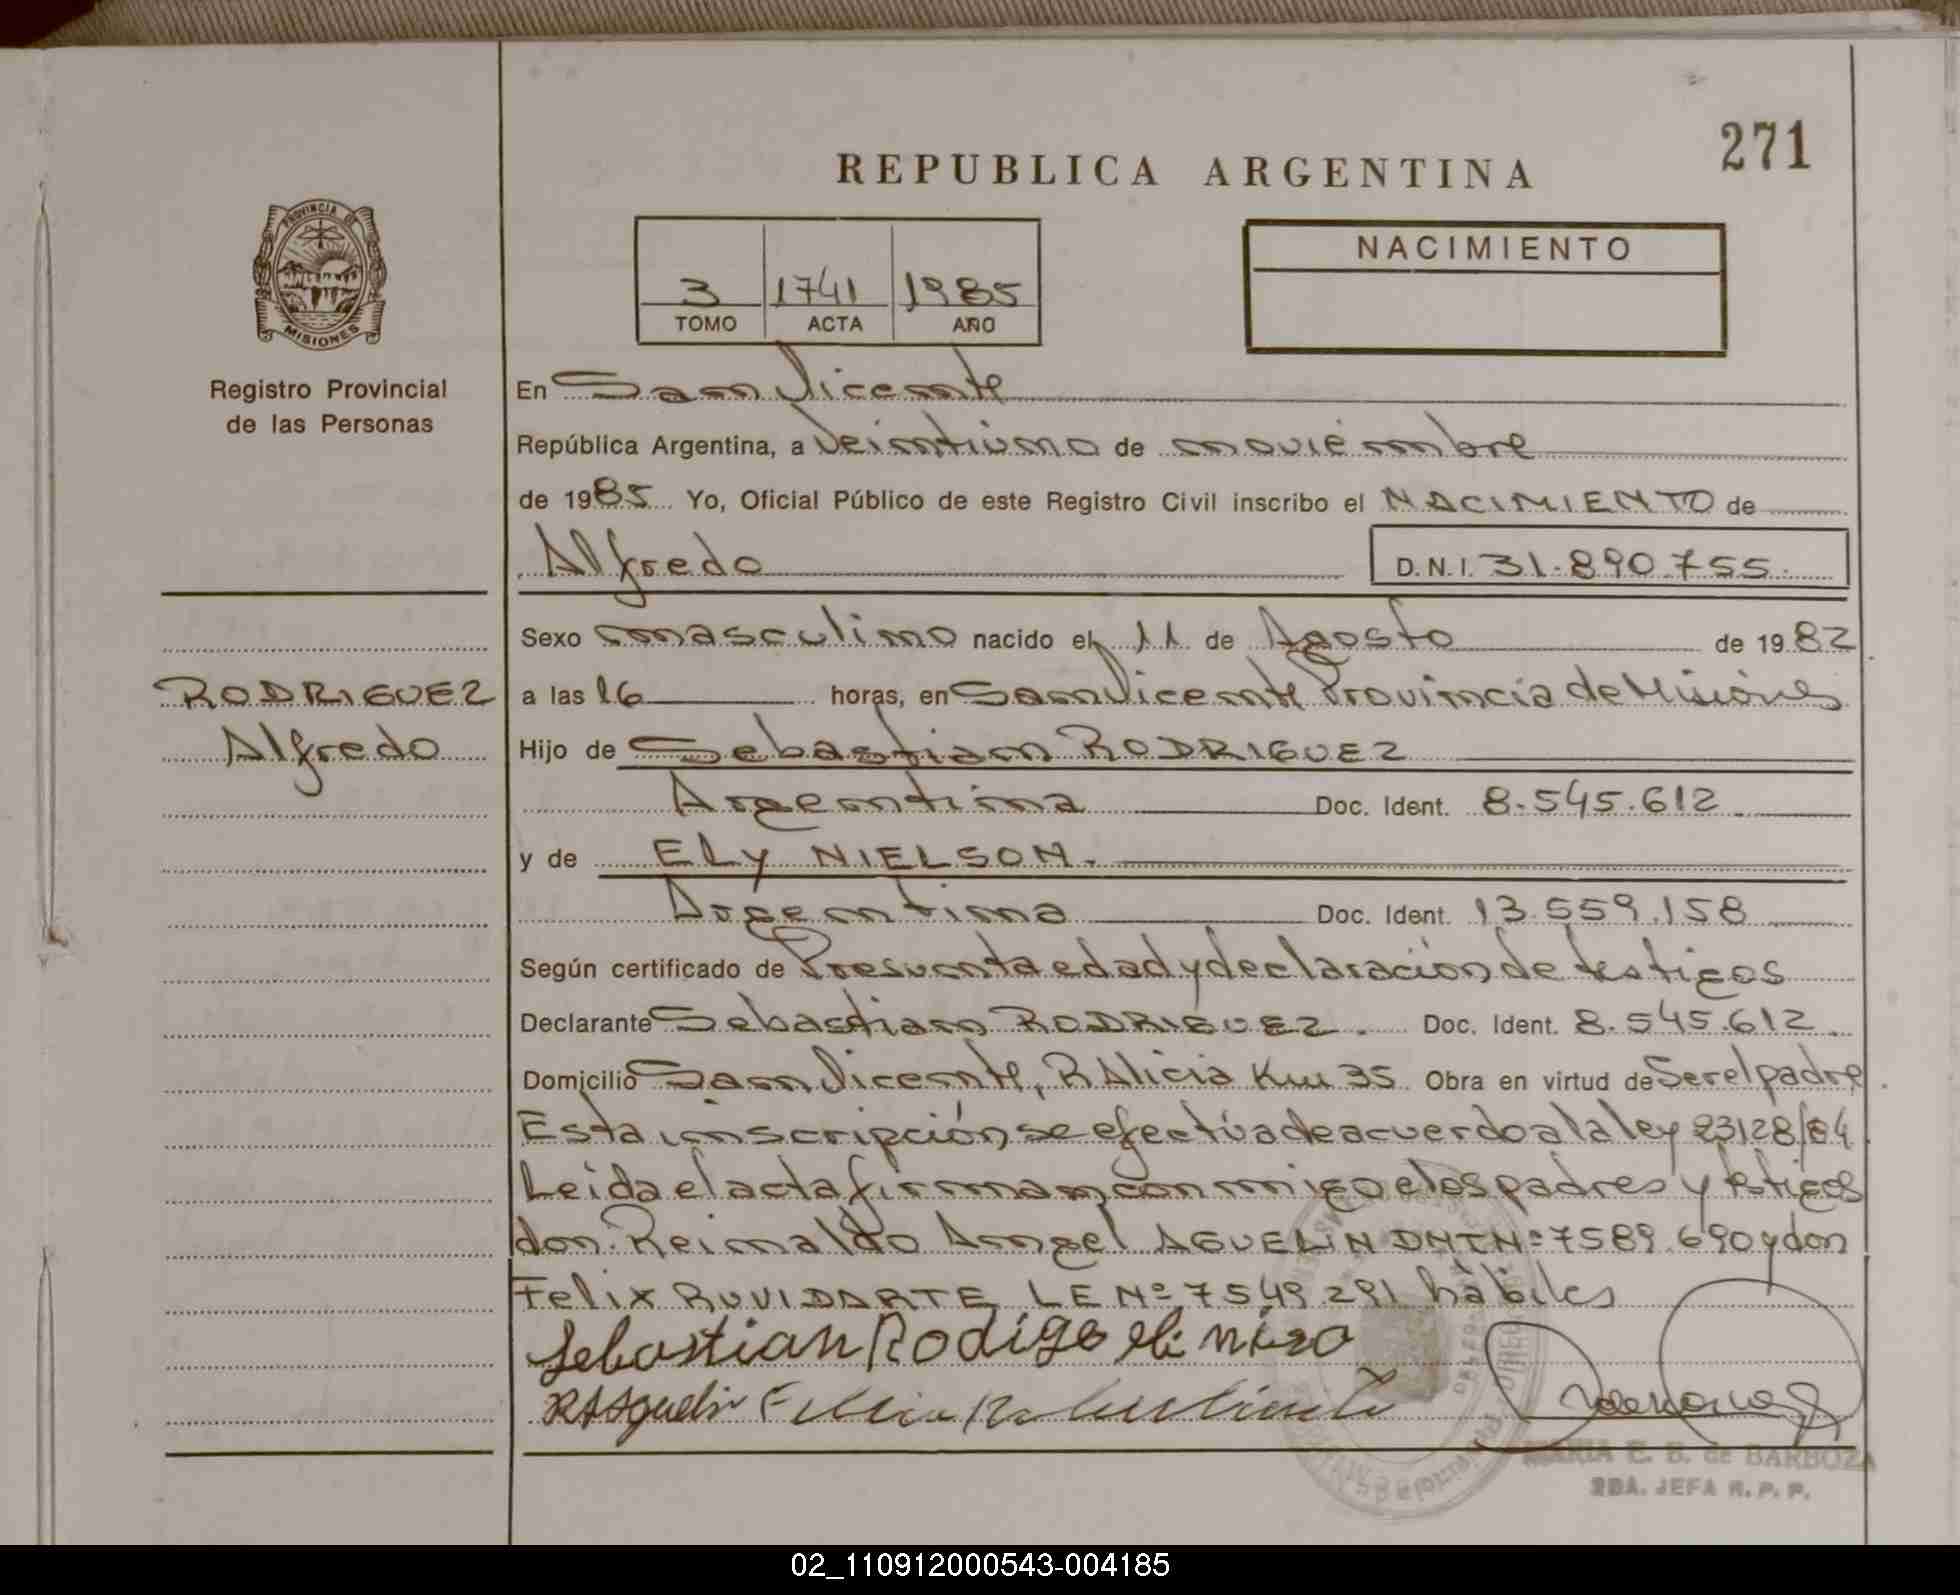 271
REPUBLICA ARGENTINA
PROVINCIA DE
MISIONES
Registro Provincial
de las Personas
3 1741 1985
TOMO ACTA AÑO
NACIMIENTO
En San Vicente
República Argentina, a Veintiuno de noviembre
de 1985 Yo, Oficial Público de este Registro Civil inscribo el NACIMIENTO de
Alfredo D.N.I. 31.890.755
Sexo masculino nacido el 11 de Agosto de 1982
RODRIGUEZ
Alfredo
a las 16 horas, en San Vicente Provincia de Misiónes
Hijo de Sebastian RODRIGUEZ
Argentina Doc. Ident. 8.545.612
y de ELy NIELSON.
Argentina Doc. Ident. 13.559.158
Según certificado de Presunta edad y declaración de testigos
Declarante Sebastian RODRIGUEZ. Doc. Ident. 8.545.612
Domicilio San Vicente, R Alicia Km 35 Obra en virtud de Ser el padre
Esta inscripción se efectúa de acuerdo a la ley 23128/84
Leida el acta firman conmigo los padres y testigos
don Reinaldo Angel AGUELIN DNI Nº 7589.690 y don
Felix RUVIDARTE LE Nº 7549.291 hàbiles
Sebastian Rodigo
RAAguelin
MARIA E. B. de BARBOZA
2DA. JEFA R. P. P.
02_110912000543-004185